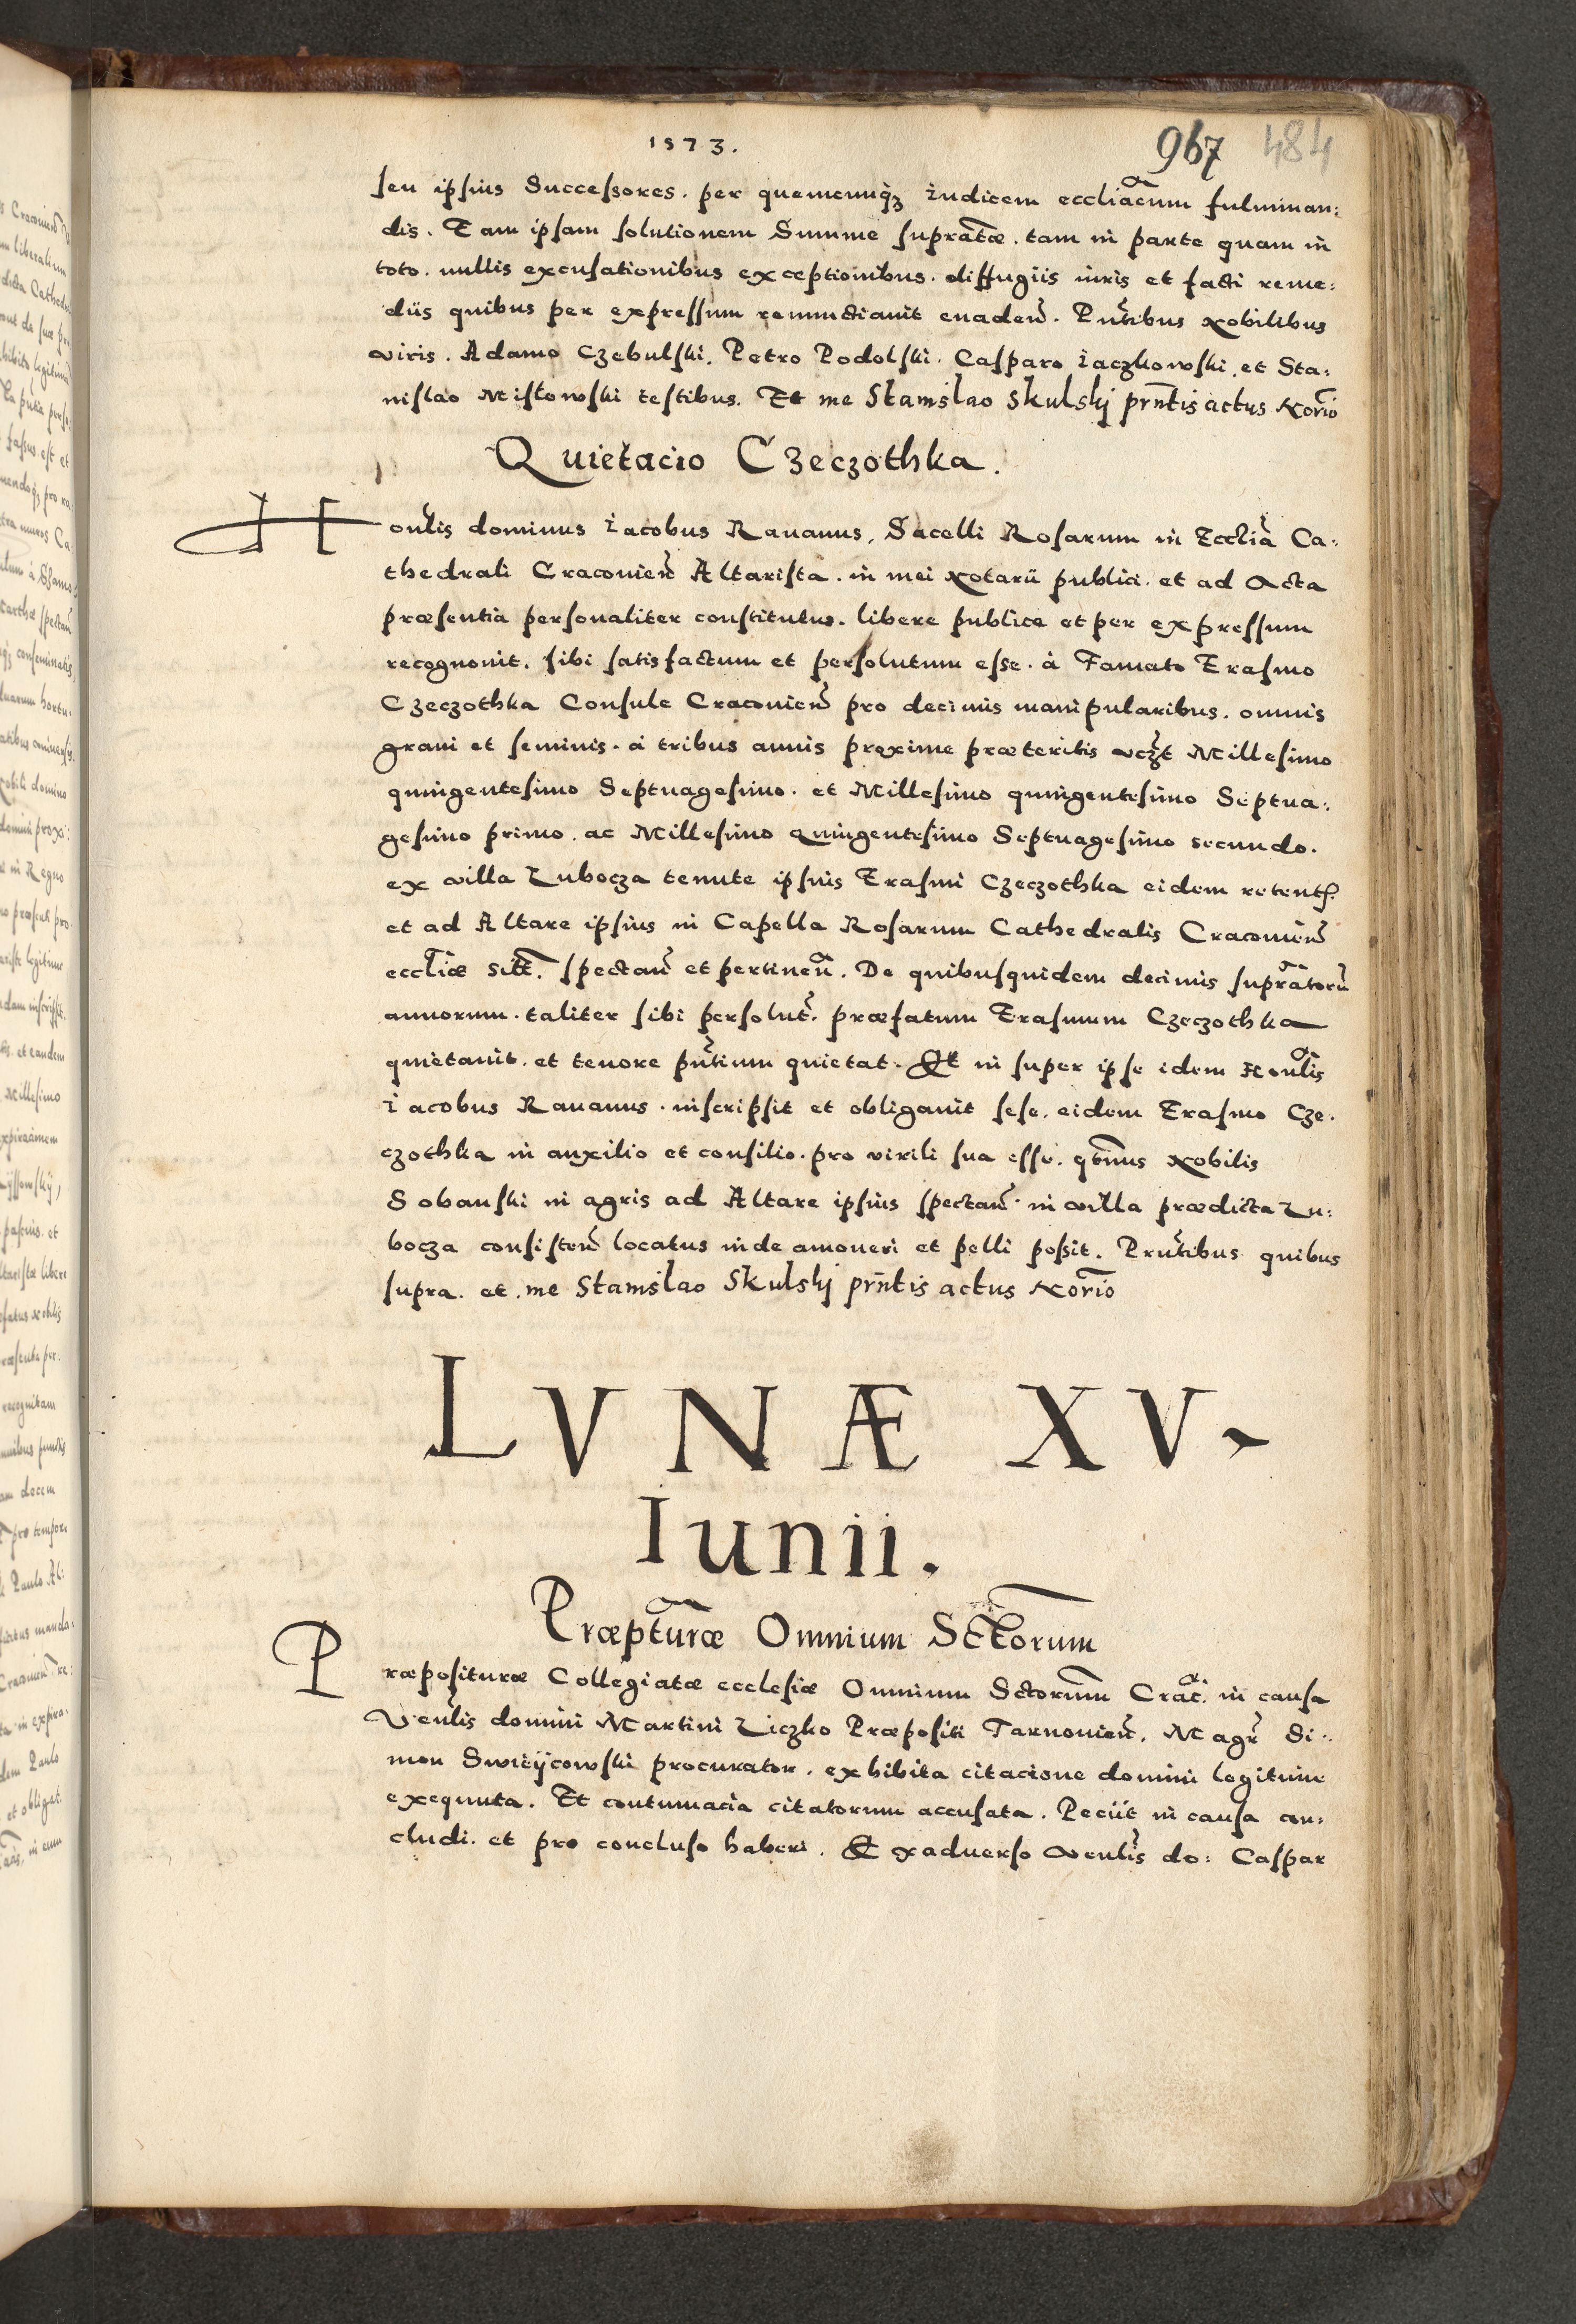 1573.
967 484
seu ipsius Successores. per quemcunqꝫ iudicem eccl̃iacum fulminan:
dis. Eam ipsam solutionem Summe supratæ. tam in parte quam in
toto. nullis excusationibus exceptionibus. diffugiis iuris et facti reme:
diis quibus per expressum renunctiauit euadeñ. Pñtibus Nobilibus
viris. Adamo Czebulski. Petro Podolski. Casparo iaczkowski. et Sta:
nislao Mistowski testibus. Et me Stanislao Skulskj prñtis actus Norio
Quietacio Czeczothka.
Honl̃is dominus iacobus Rauanus, Sacelli Rosarum in Eccl̃ia Ca:
thedrali Cracouieñ Altarista. in mei Notarii publici. et ad Acta
præsentia personaliter constitutus. libere publice et per expressum
recognouit. sibi satisfactum et persolutum esse. à Famato Erasmo
Czeczothka Consule Cracouieñ pro decimis manipularibus. omnis
grani et seminis. à tribus annis proxime præteritis vcꝫt Millesimo
quingentesimo Septuagesimo. et Millesimo quingentesimo Septua:
gesimo primo. ac Millesimo quingentesimo Septuagesimo secundo.
ex villa Lubocza tenute ipsius Erasmi Czeczothka eidem retent.
et ad Altare ipsius in Capella Rosarum Cathedralis Cracouieñ
eccl̃iæ sit̃. spectañ et pertineñ. De quibusquidem decimis supratorũ
annorum. taliter sibi persolut̃. præfatum Erasmum Czeczothka
quietauit. et tenore pñtium quietat. Et in super ipse idem Honl̃is
iacobus Rauanus. inscripsit et obligauit sese. eidem Erasmo Cze.
czothka in auxilio et consilio. pro virili sua esse. qtñus Nobilis
Sobanski in agris ad Altare ipsius spectañ. in villa prædicta Lu:
bocza consisteñ locatus inde amoueri et pelli poßit. Prñtibus quibus
supra. et. me Stanislao Skulskj prñtis actus Norio
LVNÆ XV
Iunii.
Præpturæ Omnium Sctorum
Præposituræ Collegiatæ ecclesiæ Omnium Sctorum Crac̃. in causa
Venl̃is domini Martini Liczko Præpositi Tarnouieñ. Magr̃ Si:
mon Swieijcowski procurator. exhibita citacione domini legitime
exequuta. Et contumacia citatorum accusata. Peciit in causa con:
cludi. et pro concluso haberi. Et exaduerso venl̃is do: Caspar